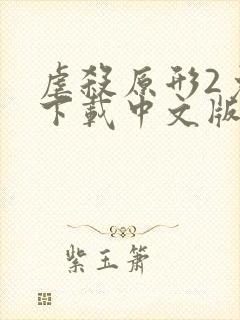 虐殺原形2
下載中文版
紫玉箫